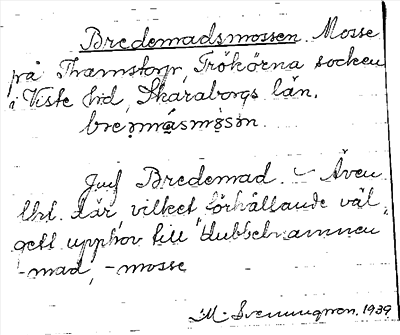 Bredemadsmossen. Mosse
på Thamstorp, Trökörna socken
i Viste hd, Skaraborgs län.
bremmåsmåsən.
Jmf Bredemad. – Även
där, vilket förhållande väl
gett upphov till dubbelnamnen
-mad, -mosse
M. Svenungson. 1939